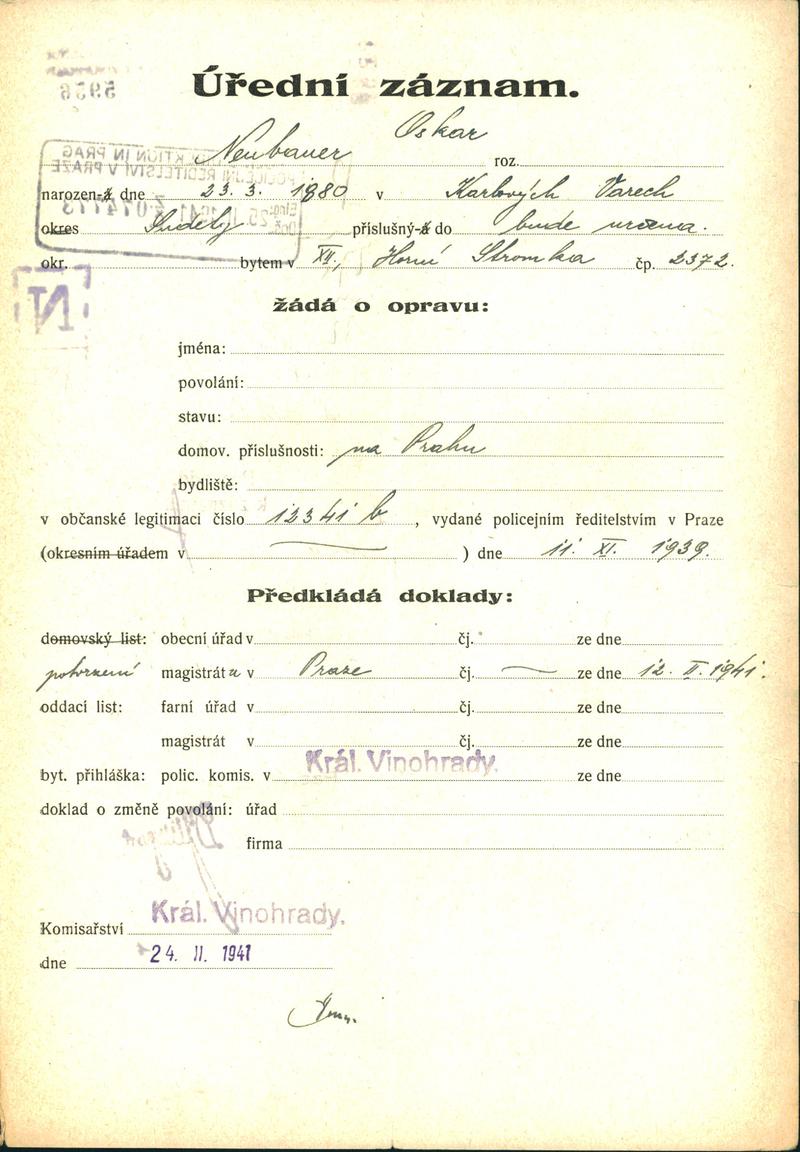 Úřední záznam.
Neubauer Oskar roz.
narozen-á dne 23. 3. 1880 v Karlových Varech
okres Sudety příslušný-á do bude určena.
okr. bytem v XII., Horní Stromka čp. 2372.
žádá o opravu:
jména:
povolání:
stavu:
domov. příslušnosti: na Prahu
bydliště:
v občanské legitimaci číslo 12341 b, vydané policejním ředitelstvím v Praze
(okresním úřadem v ) dne 11. XI. 1939.
Předkládá doklady:
domovský list: obecní úřad v čj. ze dne
potvrzení magistrátu v Praze čj. — ze dne 12. II. 1941.
oddací list: farní úřad v čj. ze dne
magistrát v čj. ze dne
byt. přihláška: polic. komis. v Král. Vinohrady. ze dne
doklad o změně povolání: úřad
firma
Komisařství Král. Vinohrady.
dne 24. II. 1941